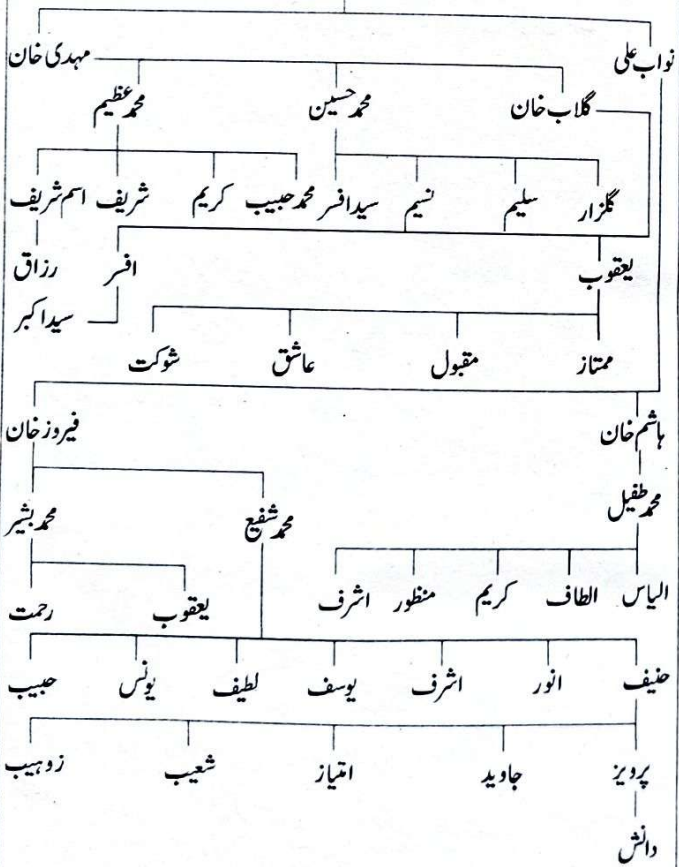 نواب علی مہدی خان
گلاب خان محمد حسین محمد عظیم
گلزار سلیم نسیم سید افسر محمد حبیب کریم شریف اسم شریف
یعقوب افسر رزاق
سید اکبر
ممتاز مقبول عاشق شوکت
ہاشم خان فیروز خان
محمد طفیل محمد شفیع محمد بشیر
الیاس الطاف کریم منظور اشرف یعقوب رحمت
حنیف انور اشرف یوسف لطیف یونس حبیب
پرویز جاوید امتیاز شعیب زوہیب
دانش